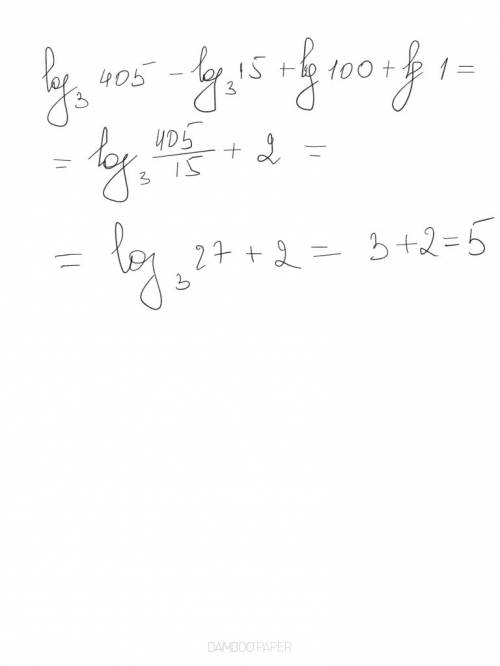 log₃ 405 − log₃ 15 + lg 100 + lg 1 =
= log₃ 405/15 + 2 =
= log₃ 27 + 2 = 3 + 2 = 5
BAMBOO PAPER